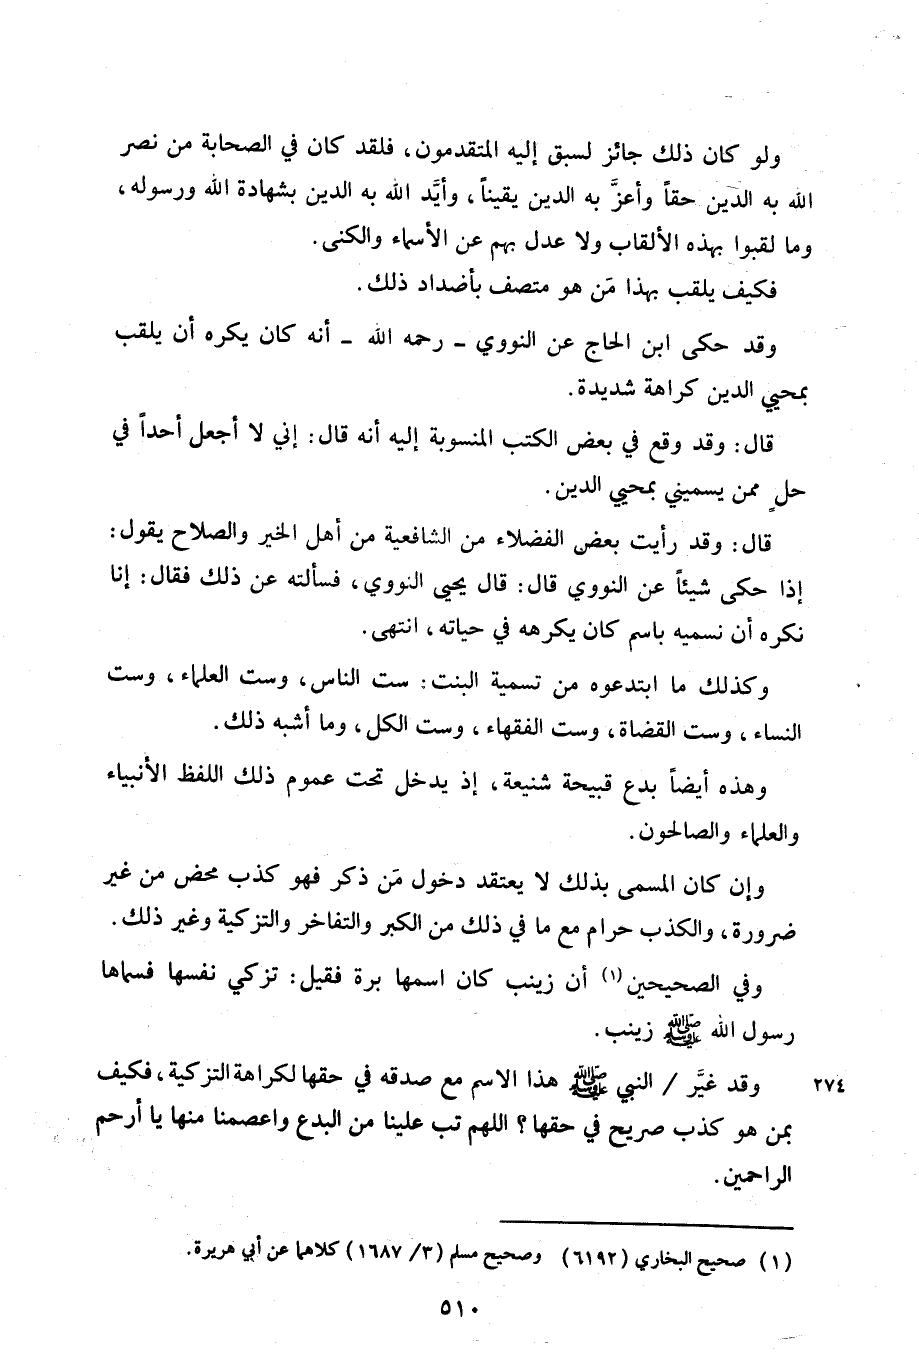 ولو كان ذلك جائز لسبق إليه المتقدمون، فلقد كان في الصحابة من نصر
الله به الدين حقاً وأعزَّ به الدين يقيناً، وأيَّد الله به الدين بشهادة الله ورسوله،
وما لقبوا بهذه الألقاب ولا عدل بهم عن الأسماء والكنى.
فكيف يلقب بهذا مَن هو متصف بأضداد ذلك.
وقد حكى ابن الحاج عن النووي - رحمه الله - أنه كان يكره أن يلقب
بمحيي الدين كراهة شديدة.
قال: وقد وقع في بعض الكتب المنسوبة إليه أنه قال: إني لا أجعل أحداً في
حلٍ ممن يسميني بمحيي الدين.
قال: وقد رأيت بعض الفضلاء من الشافعية من أهل الخير والصلاح يقول:
إذا حكى شيئاً عن النووي قال: قال يحيى النووي، فسألته عن ذلك فقال: إنا
نكره أن نسميه باسم كان يكرهه في حياته، انتهى.
وكذلك ما ابتدعوه من تسمية البنت: ست الناس، وست العلماء، وست
النساء، وست القضاة، وست الفقهاء، وست الكل، وما أشبه ذلك.
وهذه أيضاً بدع قبيحة شنيعة، إذ يدخل تحت عموم ذلك اللفظ الأنبياء
والعلماء والصالحون.
وإن كان المسمى بذلك لا يعتقد دخول مَن ذكر فهو كذب محض من غير
ضرورة، والكذب حرام مع ما في ذلك من الكبر والتفاخر والتزكية وغير ذلك.
وفي الصحيحين(١) أن زينب كان اسمها برة فقيل: تزكي نفسها فسماها
رسول الله ﷺ زينب.
وقد غيَّر / النبي ﷺ هذا الاسم مع صدقه في حقها لكراهة التزكية، فكيف ٢٧٤
بمن هو كذب صريح في حقها؟ اللهم تب علينا من البدع واعصمنا منها يا أرحم
الراحمين.
(١) صحيح البخاري (٦١٩٢) وصحيح مسلم (٣/ ١٦٨٧) كلاهما عن أبي هريرة.
٥١٠